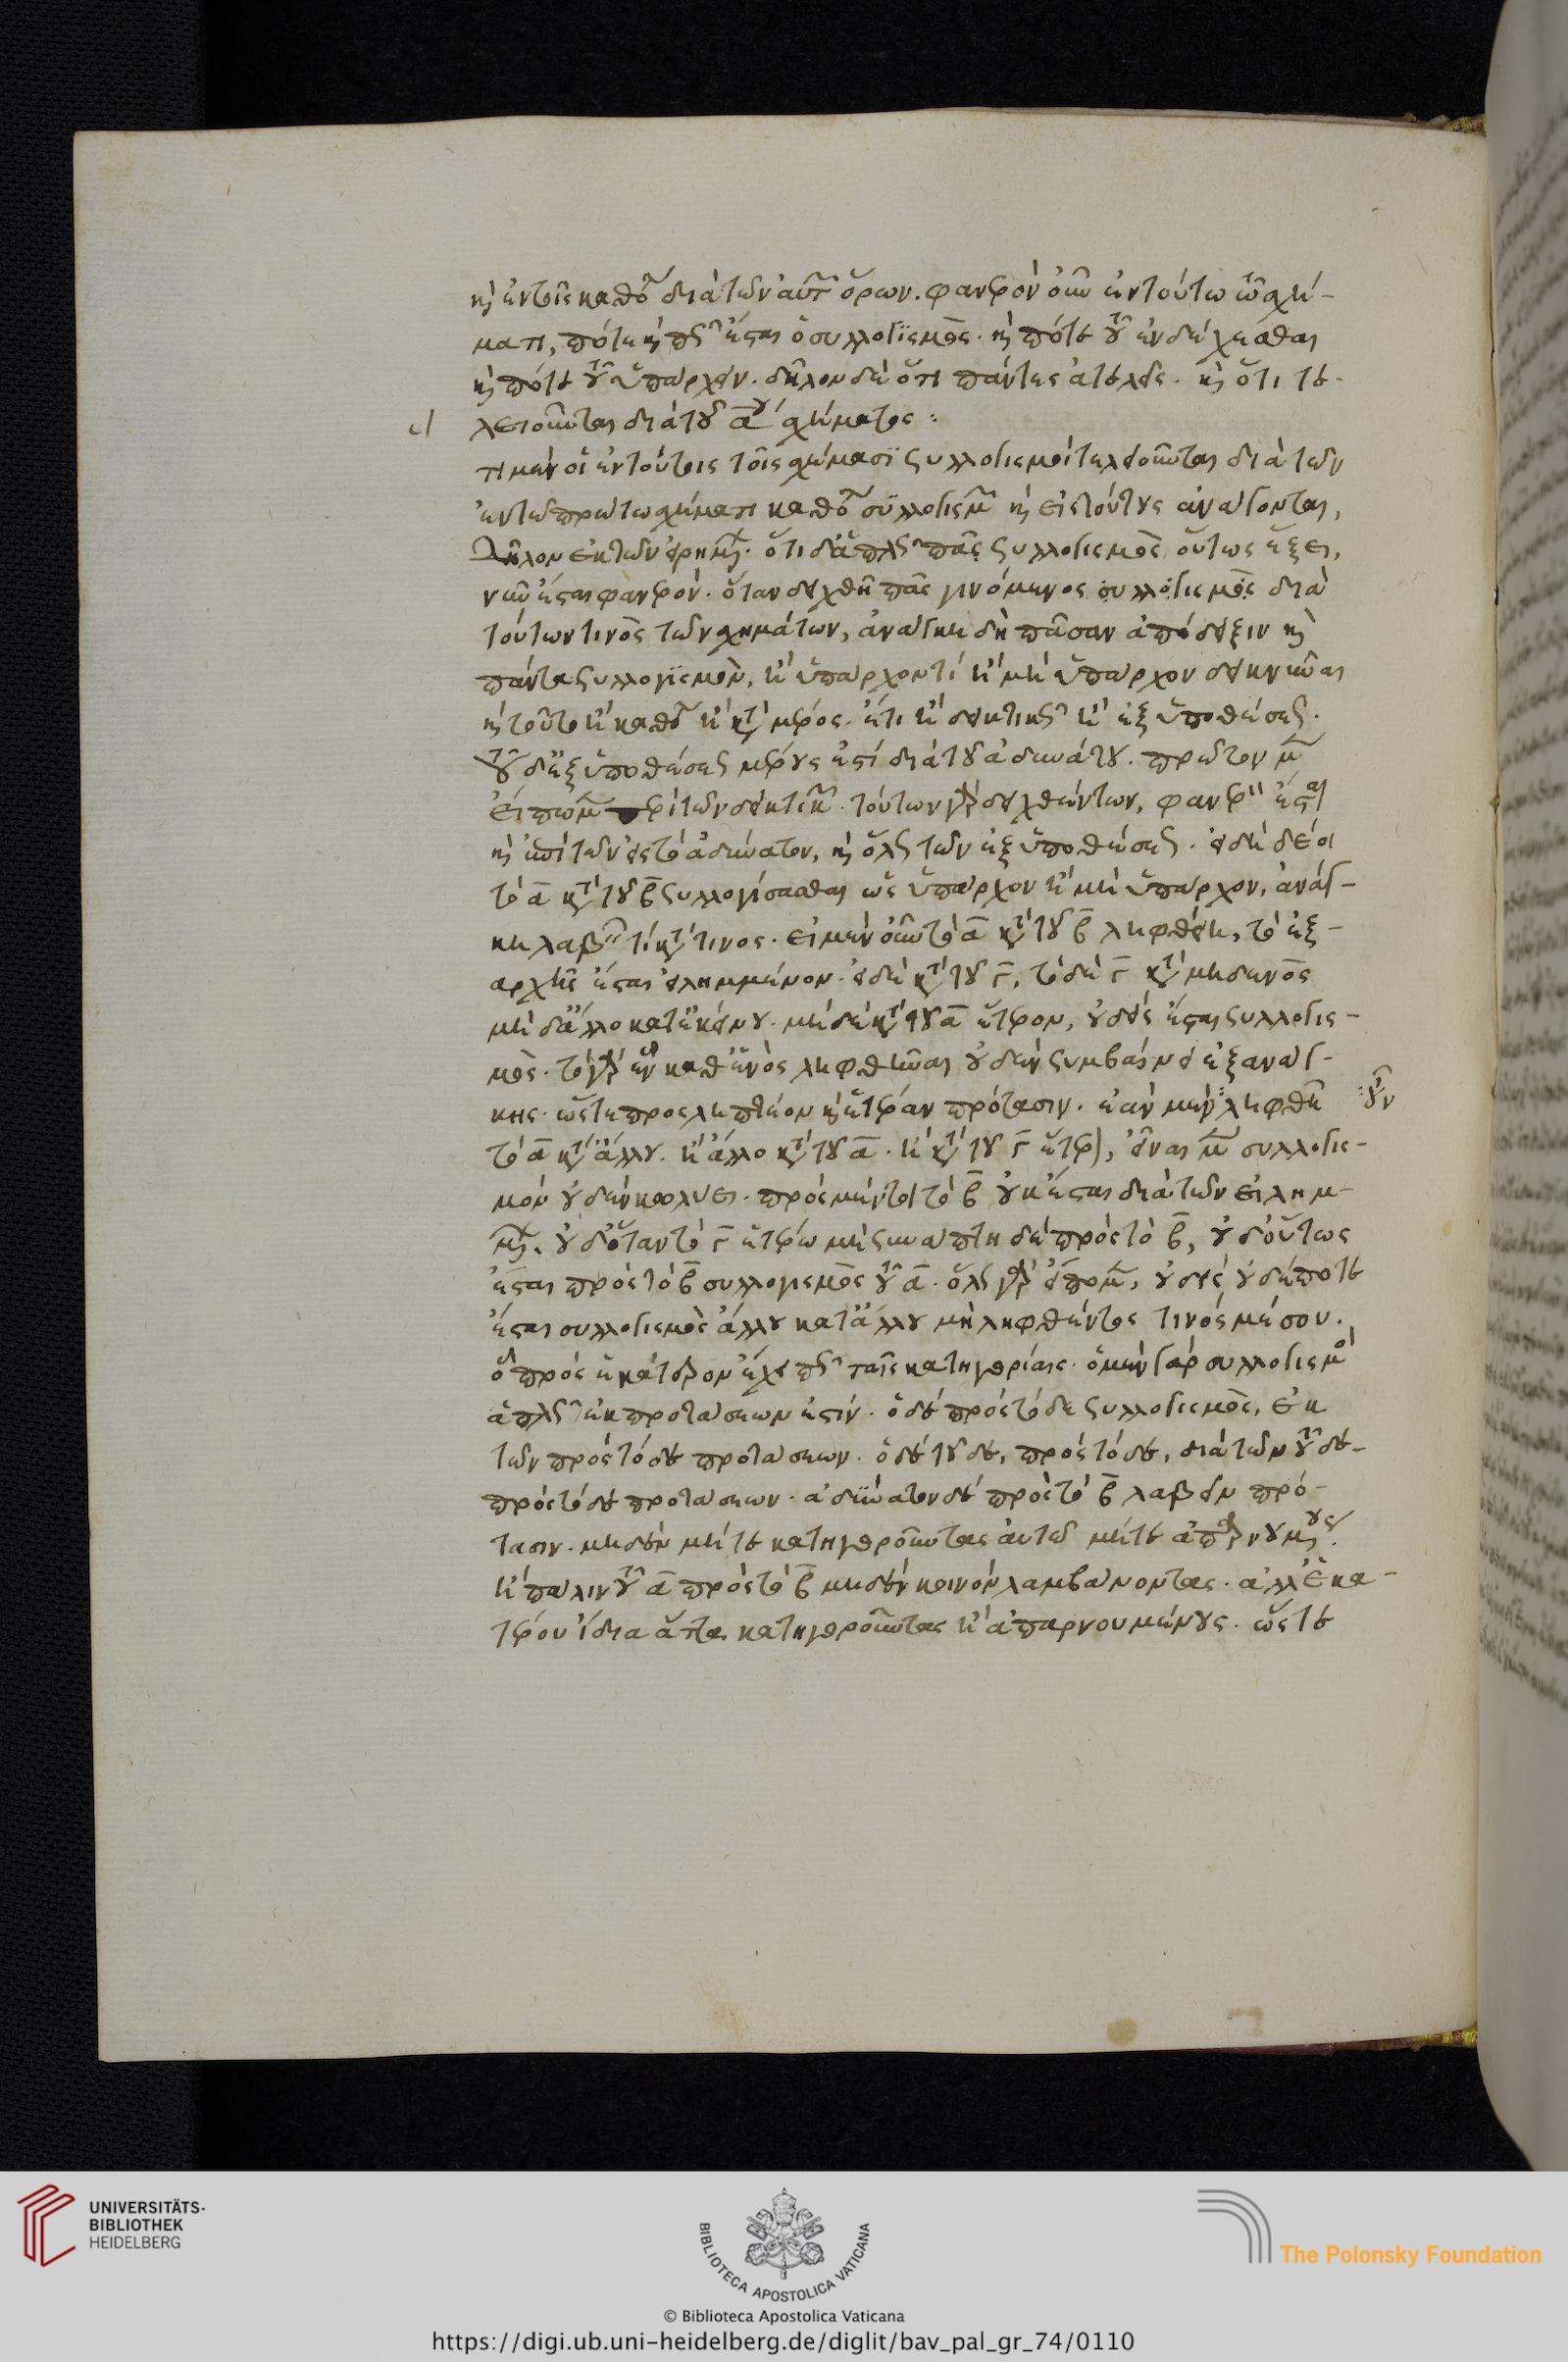 καὶ ἐν τοῖς καθόλου διὰ τῶν αὐτῶν ὅρων. φανερὸν οὖν ἐν τούτω τῶ σχή-
ματι, πότε καὶ πῶς ἔσται ὁ συλλογισμός. καὶ πότε τοῦ ἐνδέχεσθαι
καὶ πότε τοῦ ὑπάρχειν. δῆλον δὲ ὅτι πάντες ἀτελεῖς. καὶ ὅτι τε-
λειοῦνται διὰ τοῦ α̅ου σχήματος:
τι μὲν οἱ ἐν τούτοις τοῖς σχήμασϊ συλλογισμοὶ τελειοῦνται διὰ τῶν
ἐν τῶ πρώτω σχήματι καθόλου συλλογισμῶν καὶ εἰς τούτους ἀνάγονται,
δῆλον ἐκ τῶν εἰρημένων. ὅτι δ' ἁπλῶς πᾶς συλλογισμὸς οὕτως ἕξει,
νῦν ἔσται φανερόν. ὅταν δειχθῆ πᾶς γινόμενος συλλογισμὸς διὰ
τούτων τινὸς τῶν σχημάτων, ἀνάγκη δὴ πᾶσαν ἀπόδειξιν καὶ
πάντα συλλογϊσμὸν, ἢ ὑπάρχον τί ἢ μὴ ὑπάρχον δεικνῦναι
καὶ τοῦτο ἢ καθόλου ἢ κατὰ μέρος. ἔτι ἢ δεικτικῶς ἢ ἐξ ὑποθέσεως.
τοῦ δ' ἐξ ὑποθέσεως μέρος ἐστὶ διὰ τοῦ ἀδυνάτου. πρῶτον μὲν
εἴπωμεν περὶ τῶν δεικτικῶν. τούτων γὰρ δειχθέντων, φανερὸν ἔσται
καὶ ἐπὶ τῶν εἰς τὸ ἀδύνατον, καὶ ὅλως τῶν ἐξ ὑποθέσεως. εἰ δὴ δέοι
τὸ α̅ κατὰ τοῦ β̅ συλλογίσασθαι ὡς ὑπάρχον ἢ μὴ ὑπάρχον, ἀνάγ-
κη λαβεῖν τὶ κατὰ τινος. εἰ μὲν οὖν τὸ α̅ κατὰ τοῦ β̅ ληφθείη, τὸ ἐξ-
αρχῆς ἔσται εἰλημμένον. εἰ δὲ κατὰ τοῦ γ̅, τὸ δὲ γ̅ κατὰ μηδενὸς
μὴ δ' ἄλλο κατ' ἐκείνου. μὴ δὲ κατὰ τοῦ α̅ ἕτερον, οὐδεὶς ἔσται συλλογισ-
μὸς. τὸ γὰρ ἓν καθ' ἑνὸς ληφθῆναι οὐδὲν συμβαίνει ἐξ ἀνάγ-
κης. ὥστε προσληπτέον καὶ ἑτέραν πρότασιν. ἐὰν μὲν ληφθῆ οὖν
τὸ α̅ κατὰ ἄλλου. ἢ ἄλλο κατὰ τοῦ α̅. ἢ κατὰ τοῦ γ̅ ἕτερον, εἶναι μὲν συλλογισ-
μὸν οὐδὲν κωλύει. πρὸς μέντοι τὸ β̅ οὐκ ἔσται διὰ τῶν εἰλημ-
μένων. οὐδ' ὅταν τὸ γ̅ ἑτέρω μὴ συνάπτη δὲ πρὸς τὸ β̅, οὐδ' οὕτως
ἔσται πρὸς τὸ β̅ συλλογισμὸς τοῦ α̅. ὅλως γὰρ εἴπομεν, οὐδεὶς οὐδέποτε
ἔσται συλλογισμὸς ἄλλου κατ' ἄλλου μὴ ληφθέντος τινὸς μέσου.
ὃ πρὸς ἑκάτερον ἔχει πῶς ταῖς κατηγορίαις. ὁ μὲν γὰρ συλλογισμὸς
ἁπλῶς ἐκ προτάσεων ἐστίν. ὁ δὲ πρὸς τόδε συλλογισμὸς, ἐκ
τῶν πρὸς τόδε προτάσεων. ὁ δὲ τοῦδε, πρὸς τόδε, διὰ τῶν τοῦδε-
πρὸς τόδε προτάσεων. ἀδύνατον δὲ πρὸς τὸ β̅ λαβεῖν πρό-
τασιν. μηδὲν μήτε κατηγοροῦντας αὐτοῦ μήτε ἀπαρνουμένους.
ἢ πάλιν τοῦ α̅ πρὸς τὸ β̅ μηδὲν κοινὸν λαμβάνοντας. ἀλλ' ἑκα-
τέρου ἴδια ἄττα κατηγοροῦντας ἢ ἀπαρνουμένους. ὥστε
UNIVERSITÄTS-
BIBLIOTHEK
HEIDELBERG
BIBLIOTECA APOSTOLICA VATICANA
The Polonsky Foundation
© Biblioteca Apostolica Vaticana
https://digi.ub.uni-heidelberg.de/diglit/bav_pal_gr_74/0110